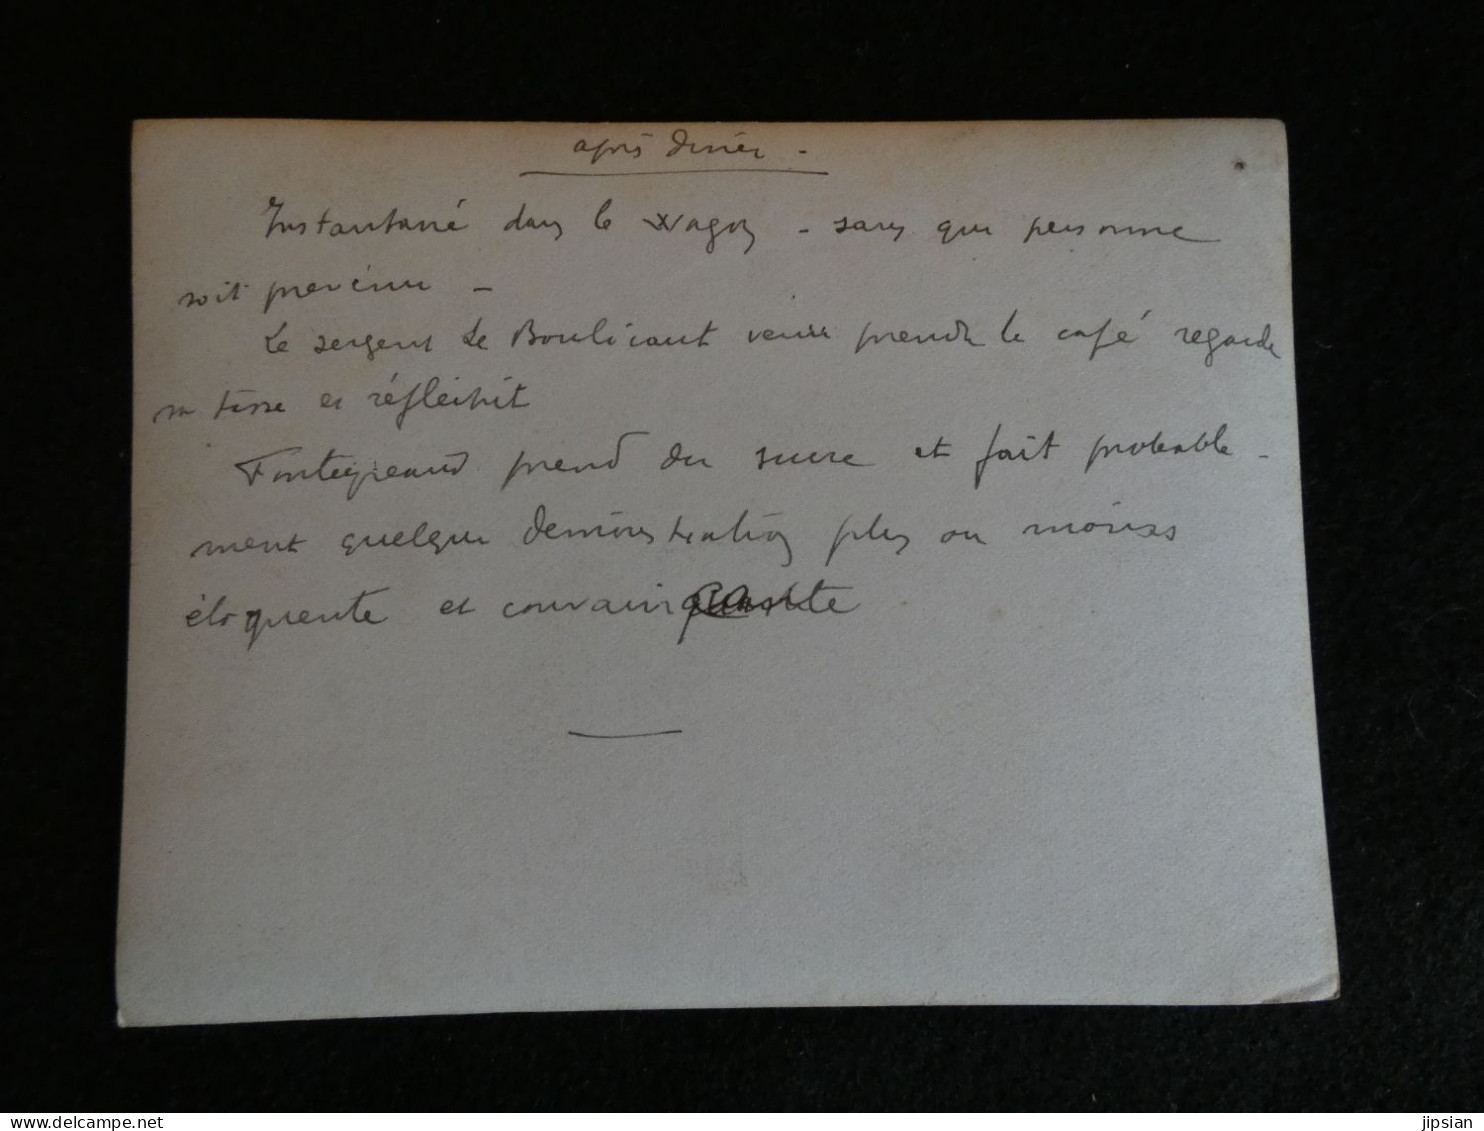 après dîner -
Instantané dans le wagon - sans que personne
soit prévenu -
Le sergent Le Boulicaut venu prendre le café regarde
sa tasse et réfléchit
prend du sucre et fait probable-
ment quelque démonstration plus ou moins
éloquente et convaincante
https://www.delcampe.net
jipsian